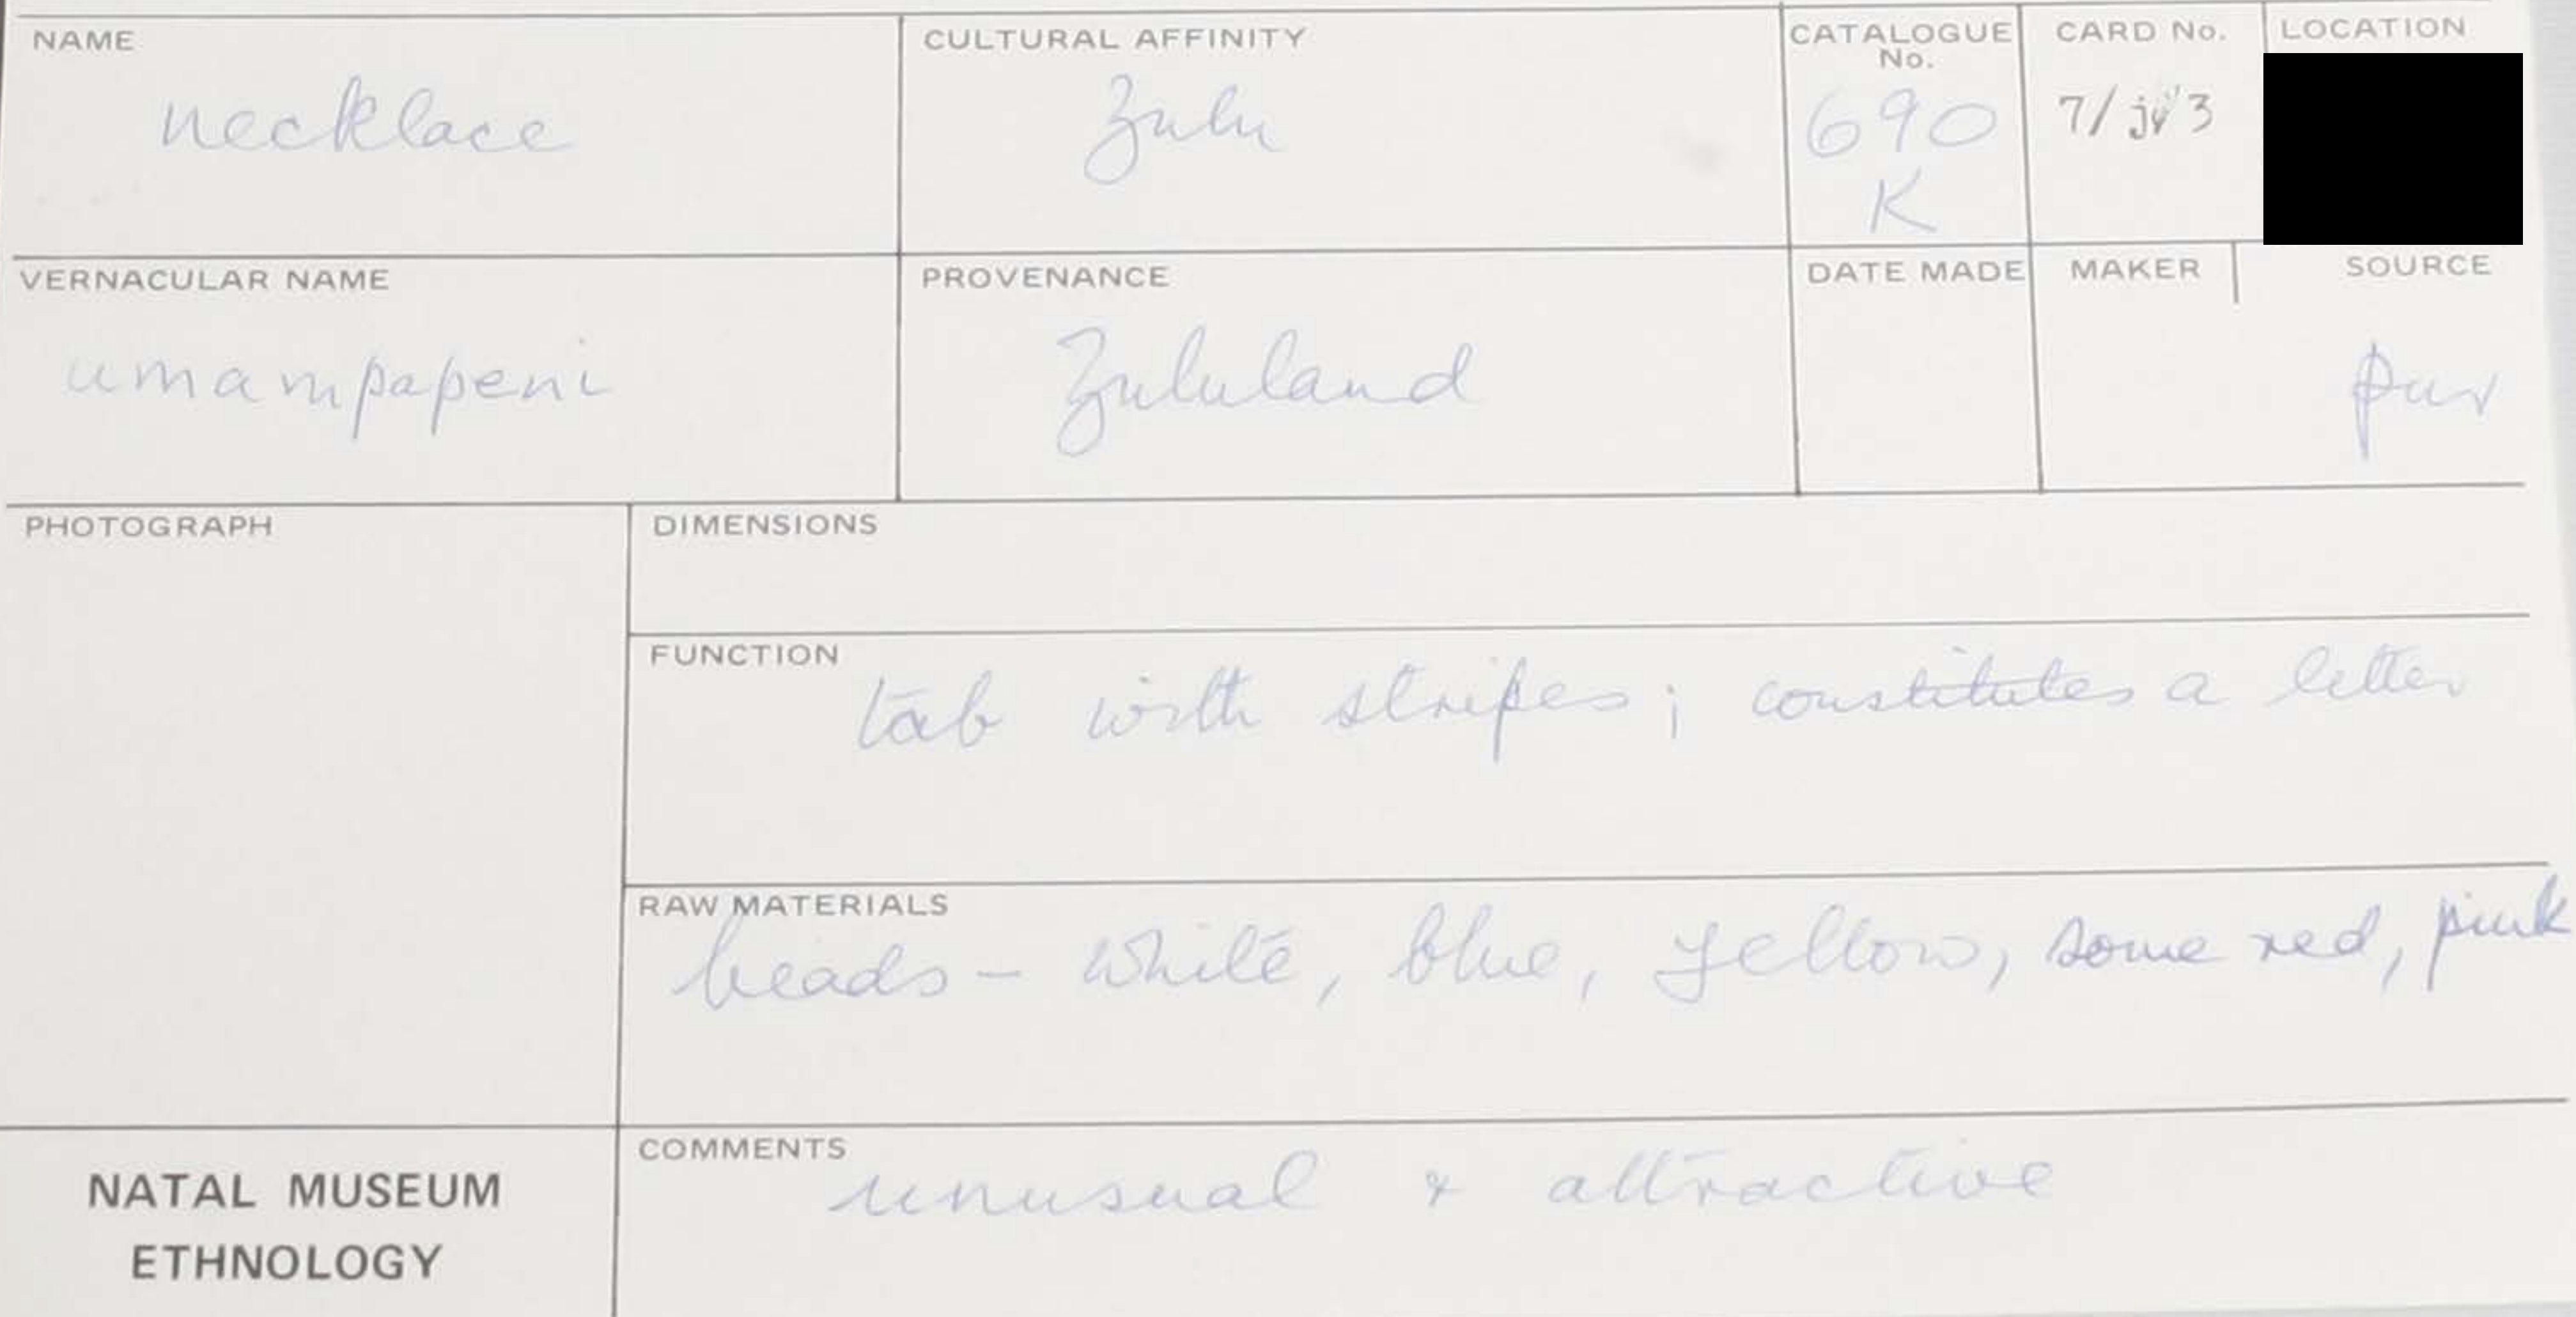 NAME
necklace
CULTURAL AFFINITY
Zulu
CATALOGUE
No.
690
K
CARD No.
7/
LOCATION
VERNACULAR NAME
umampapeni
PROVENANCE
Zululand
DATE MADE
MAKER
SOURCE
pur
PHOTOGRAPH
DIMENSIONS
FUNCTION
tab with stripes; constitutes a letter
RAW MATERIALS
beads - white, blue, yellow, some red, pink
NATAL MUSEUM
ETHNOLOGY
COMMENTS
unusual & attractive